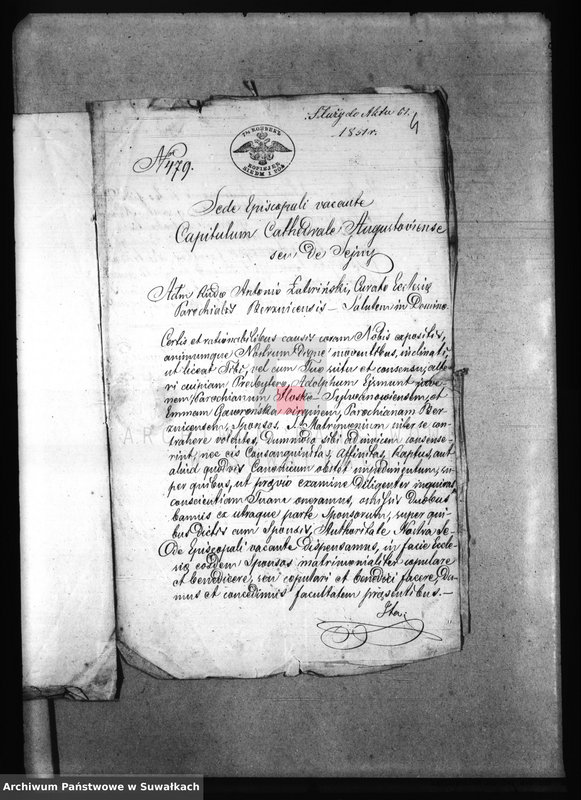 Służy do Aktu 61.
1851 r.
7½ КОПѢЕКЪ
KOPIEJEK
SIEDM I PÓŁ
N° 479.
Sede Episcopali vacante
Capitulum Cathedrale Augustoviense
seu de Sejny
Adm Rndo Antonio, Curato Ecclesiæ
Parochialis Berznicensis – Salutem in Domino
Certis et rationabilibus causis coram Nobis expositis,
animumque Nostrum digne moventibus, inclinati,
ut liceat Tibi, vel cum Tuo scitu et consensu, alte-
ri cuipiam Presbytero, Adolphum Ejzmont juve-
nem, Parochianum Slosko-Sylwanowiensem, et
Emmam Gaworonska virginem, Parochianam Ber-
znicensem, Sponsos, Matrimonium inter se con-
trahere volentes, dummodo sibi ad invicem consense-
rint, nec eis Consanguinitas, Affinitas, Raptus, aut
aliud quodvis Canonicum obstet impedimentum, su-
per quibus, ut prævio examine diligenter inquiras
conscientiam Tuam oneramus, omissis duobus
bannis ex utraque parte Sponsorum, super qui-
bus dictis cum Sponsis, Authoritate Nostra Se-
de Episcopali vacante dispensamus, in facie Eccle-
siæ eosdem Sponsos matrimonialiter copulare
et benedicere, seu copulari et benedici facere, Da-
mus et concedimus facultatem præsentibus. –
Ita,
Archiwum Państwowe w Suwałkach